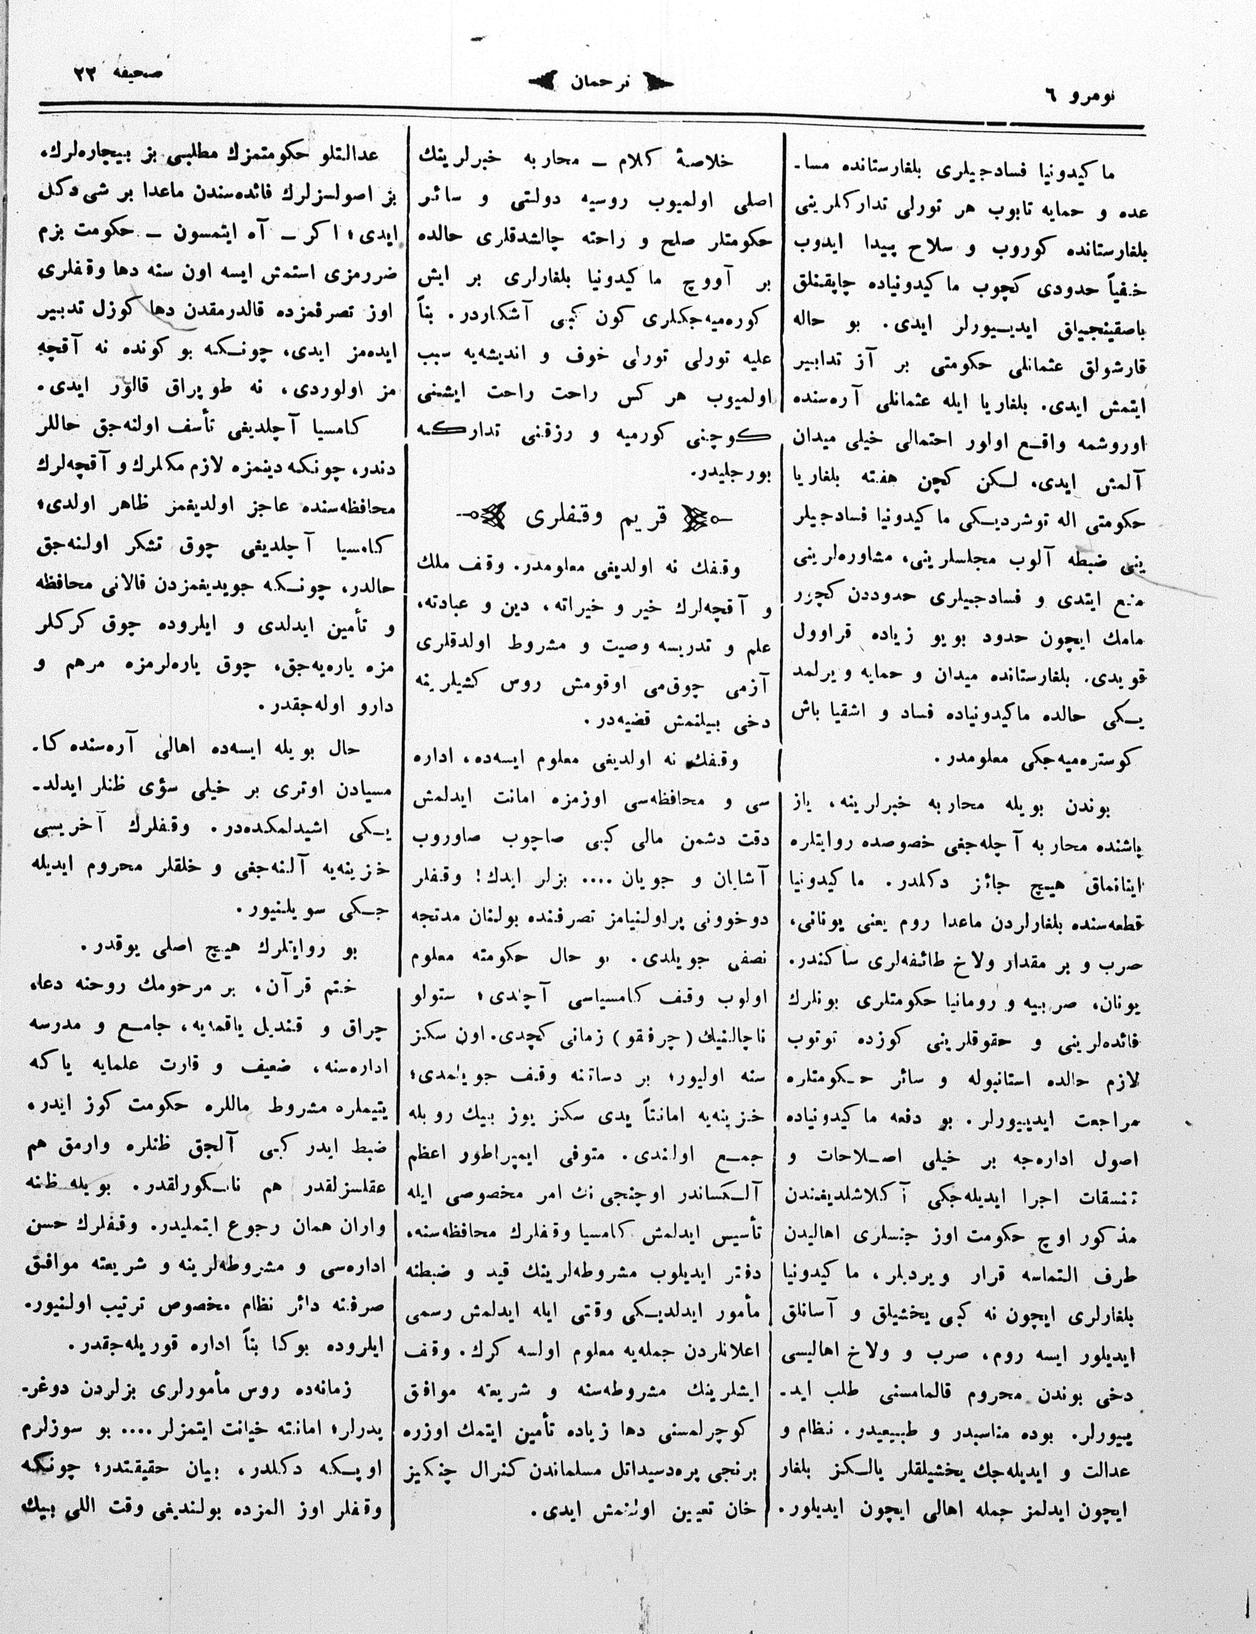 نومرو ٦
ترجمان
صحيفه ٢٢
ماكيدونيا فسادجيلری بلغارستانده مسا-
عده و حمايه تابوب هر تورلی تداركلرينی
بلغارستانده كوروب و سلاح پيدا ايدوب
خفياً حدودی كچوب ماكيدونياده چاپقنلق
باصقينجيلق ايديييورلر ايدی. بو حاله
قارشولق عثمانلی حكومتی بر آز تدابير
ايتمش ايدی. بلغاريا ايله عثمانلی آره‌سنده
اوروشمه واقع اولور احتمالی خيلی ميدان
آلمش ايدی. لكن كچن هفته بلغاريا
حكومتی اله توشرديكی ماكيدونيا فسادجيلر
ينی ضبطه آلوب مجلسلرينی، مشاوره‌لرينی
منع ايتدی و فسادجيلری حدوددن كچرر
مامك ايچون حدود بويو زياده قراوول
قويدی. بلغارستانده ميدان و حمايه ويرلمد
يكی حالده ماكيدونياده فساد و اشقيا باش
كوستره‌ميه‌جكی معلومدر.
بوندن بويله محاربه خبرلرينه، ياز
باشنده محاربه آچله‌جغی خصوصده روايتلره
اينانماق هيچ جائز دكلدر. ماكيدونيا
قطعه‌سنده بلغارلردن ماعدا روم يعنی يونانی،
صرب و بر مقدار ولاخ طائفه‌لری ساكندر.
يونان، صربيه و رومانيا حكومتلری بونلرك
فائده‌لرينی و حقوقلرينی كوزده توتوب
لازم حالده استانبوله و سائر حكومتلره
مراجعت ايديييورلر. بو دفعه ماكيدونياده
اصول اداره‌جه بر خيلی اصلاحات و
تنسقات اجرا ايديله‌جكی آكلاشلديغندن
مذكور اوچ حكومت اوز جنسلری اهاليدن
طرف التماسه قرار ويرديلر، ماكيدونيا
بلغارلری ايچون نه كبی يخشيلق و آسانلق
ايديلور ايسه روم، صرب و ولاخ اهاليسی
دخی بوندن محروم قالمامسنی طلب ايد-
ييورلر. بوده مناسبدر و طبيعيدر. نظام و
عدالت و ايديله‌جك يخشيلقلر يالكز بلغار
ايچون ايدلمز جمله اهالی ايچون ايديلور.
خلاصهٔ كلام — محاربه خبرلرينك
اصلی اولميوب روسيه دولتی و سائر
حكومتلر صلح و راحته چالشدقلری حالده
بر آووچ ماكيدونيا بلغارلری بر ايش
كوره‌ميه‌جكلری كون كبی آشكاردر. بناً
عليه تورلی تورلی خوف و انديشه‌يه سبب
اولميوب هر كس راحت راحت ايشنی
كوچنی كورميه و رزقنی تداركه
بورجليدر.
قريم وقفلری
وقفك نه اولديغی معلومدر. وقف ملك
و آقچه‌لرك خير و خيراته، دين و عبادته،
علم و تدريسه وصيت و مشروط اولدقلری
آزمی چوق‌می اوقومش روس كشيلرينه
دخی بيلنمش قضيه‌در.
وقفك نه اولديغی معلوم ايسه‌ده، اداره
سی و محافظه‌سی اوزمزه امانت ايدلمش
دقت دشمن مالی كبی صاچوب صاوروب
آشابان و جويان .... بزلر ايدك! وقفلر
دوخوونی پراولنيامز تصرفنده بولنان مدتجه
نصفی جويلدی. بو حال حكومته معلوم
اولوب وقف كامسياسی آچلدی؛ ستولو
ناچالنيك (چرفقو) زمانی كچدی. اون سكز
سنه اوليور؛ بر دساتنه وقف جويلمدی؛
خزينه‌يه امانتاً يدی سكز يوز بيك روبله
جمع اولندی. متوفی ايمپراطور اعظم
آلكساندر اوچنجی نك امر مخصوصی ايله
تأسيس ايدلمش كامسيا وقفلرك محافظه‌سنه،
دفتر ايديلوب مشروطه‌لرينك قيد و ضبطنه
مأمور ايدلديكی وقتی ايله ايدلمش رسمی
اعلانلردن جمله‌يه معلوم اولسه كرك. وقف
ايشلرينك مشروطه‌سنه و شريعته موافق
كوچرلمسنی دها زياده تأمين ايتمك اوزره
برنجی پره‌دسيداتل مسلماندن كنرال چنكيز
خان تعيين اولنمش ايدی.
عدالتلو حكومتمزك مطلبی بز بيچاره‌لرك،
بز اصولسزلرك فائده‌سندن ماعدا بر شی دكل
ايدی؛ اكر — آه ايتمسون — حكومت بزم
ضررمزی استمش ايسه اون سنه دها وقفلری
اوز تصرفمزده قالدرمقدن دها كوزل تدبير
ايده‌مز ايدی، چونكه بو كونده نه آقچه
مز اولوردی، نه طوپراق قالور ايدی.
كامسيا آچلديغی تأسف اولنه‌جق حاللر
دندر، چونكه دينمزه لازم ملكلرك و آقچه‌لرك
محافظه‌سنده عاجز اولديغمز ظاهر اولدی؛
كامسيا آچلديغی چوق تشكر اولنه‌جق
حالدر، چونكه جويديغمزدن قالانی محافظه
و تأمين ايدلدی و ايلروده چوق كركلر
مزه يارايه‌جق، چوق ياره‌لرمزه مرهم و
دارو اوله‌جقدر.
حال بويله ايسه‌ده اهالی آره‌سنده كا-
مسيادن اوتری بر خيلی سؤی ظنلر ايدلد-
يكی اشيدلمكده‌در. وقفلرك آخريسی
خزينه‌يه آلنه‌جغی و خلقلر محروم ايديله
جكی سويلنيور.
بو روايتلرك هيچ اصلی يوقدر.
ختم قرآن، بر مرحومك روحنه دعا،
چراق و قنديل ياقمغه، جامع و مدرسه
اداره‌سنه، ضعيف و قارت علمايه ياكه
يتيملره مشروط ماللره حكومت كوز ايدر،
ضبط ايدر كبی آلچق ظنلره وارمق هم
عقلسزلقدر هم نانكورلقدر. بويله ظنه
واران همان رجوع ايتمليدر. وقفلرك حسن
اداره‌سی و مشروطه‌لرينه و شريعته موافق
صرفنه دائر نظام مخصوص ترتيب اولنيور.
ايلروده بوكا بناً اداره قوريله‌جقدر.
زمانه‌ده روس مأمورلری بزلردن دوغر-
يدرلر؛ امانته خيانت ايتمزلر .... بو سوزلرم
اوپكه دكلدر، بيان حقيقتدر؛ چونكه
وقفلر اوز المزده بولنديغی وقت اللی بيك